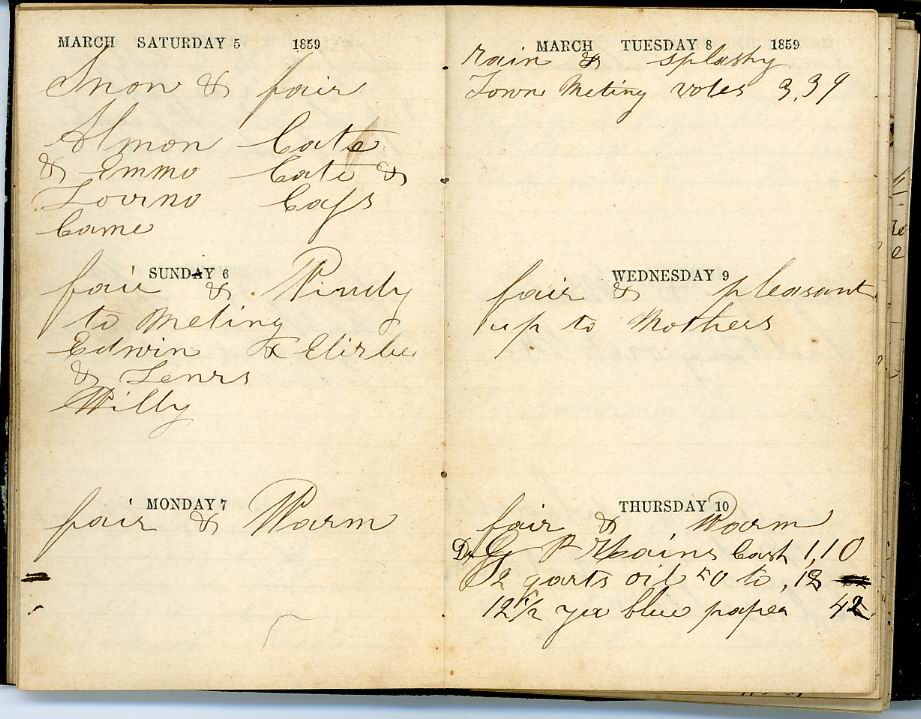 MARCH SATURDAY 5 1859
Snow & fair
Almon Cate
& Emma Cate &
Lovina Cass
Came
SUNDAY 6
fair & Windy
to Meting
Edwin &
&
Willy
MONDAY 7
fair & Warm
MARCH TUESDAY 8 1859
rain & splashy
Town Meting votes 3,39
WEDNESDAY 9
fair & pleasant
up to Mothers
THURSDAY 10
fair & Warm
Dr G P Hains Cash 1,10
2 qarts oil 50 to ,12
12 1/2 blue paper 42